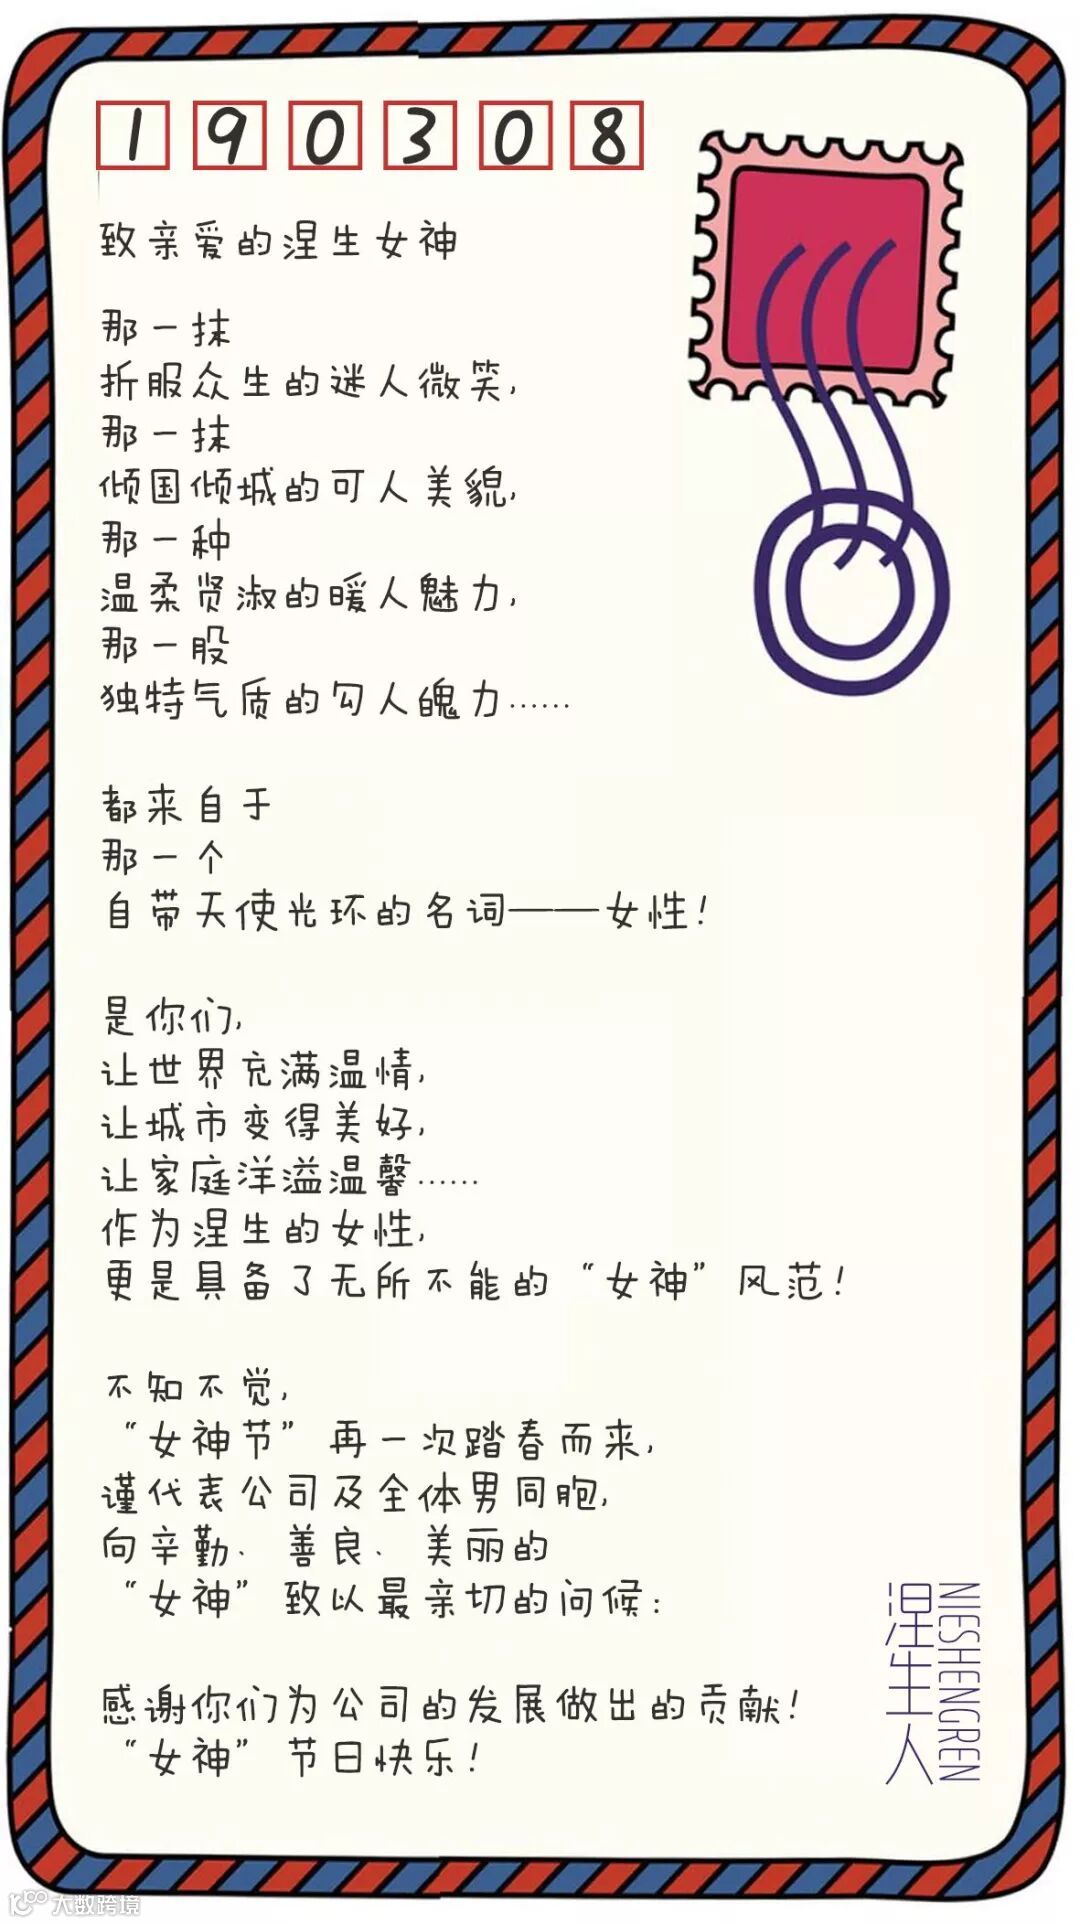 190308
致亲爱的涅生女神
那一抹
折服众生的迷人微笑，
那一抹
倾国倾城的可人美貌，
那一种
温柔贤淑的暖人魅力，
那一股
独特气质的勾人魄力……
都来自于
那一个
自带天使光环的名词——女性！
是你们，
让世界充满温情，
让城市变得美好，
让家庭洋溢温馨……
作为涅生的女性，
更是具备了无所不能的“女神”风范！
不知不觉，
“女神节”再一次踏春而来，
谨代表公司及全体男同胞，
向辛勤、善良、美丽的
“女神”致以最亲切的问候：
感谢你们为公司的发展做出的贡献！
“女神”节日快乐！
涅生人
NIESHENGREN
大数跨境